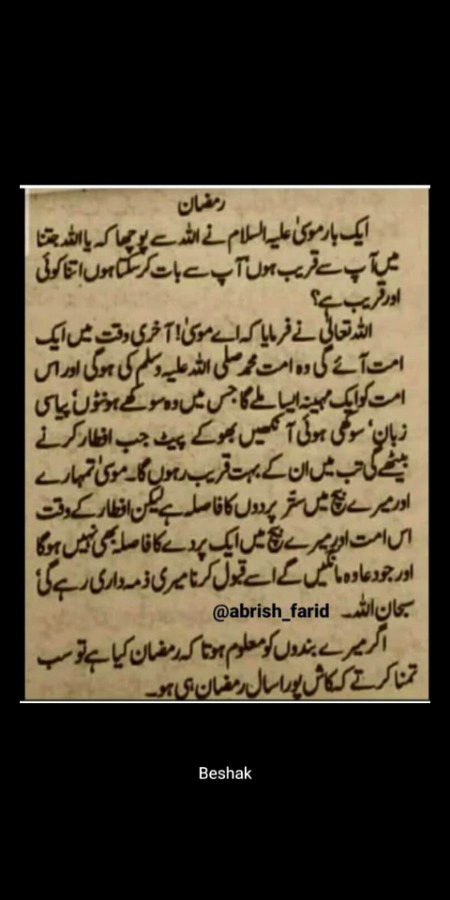 رمضان
ایک بار موسیٰ علیہ السلام نے اللہ سے پوچھا کہ یا اللہ جتنا
میں آپ سے قریب ہوں آپ سے بات کر سکتا ہوں اتنا کوئی
اور قریب ہے؟
اللہ تعالیٰ نے فرمایا کہ اے موسیٰ! آخری وقت میں ایک
امت آئے گی وہ امت محمد صلی اللہ علیہ وسلم کی ہوگی اور اس
امت کو ایک مہینہ ایسا ملے گا جس میں وہ سوکھے ہونٹوں' پیاسی
زبان' سوکھی ہوئی آنکھیں بھوکے پیٹ جب افطار کرنے
بیٹھے گی تب میں ان کے بہت قریب رہوں گا۔ موسیٰ تمہارے
اور میرے بیچ میں ستر پردوں کا فاصلہ ہے لیکن افطار کے وقت
اس امت اور میرے بیچ میں ایک پردے کا فاصلہ بھی نہیں ہوگا
اور جو دعا وہ مانگیں گے اسے قبول کرنا میری ذمہ داری رہے گی'
سبحان اللہ۔ @abrish_farid
اگر میرے بندوں کو معلوم ہوتا کہ رمضان کیا ہے تو سب
تمنا کرتے کہ کاش پورا سال رمضان ہی ہو۔
Beshak